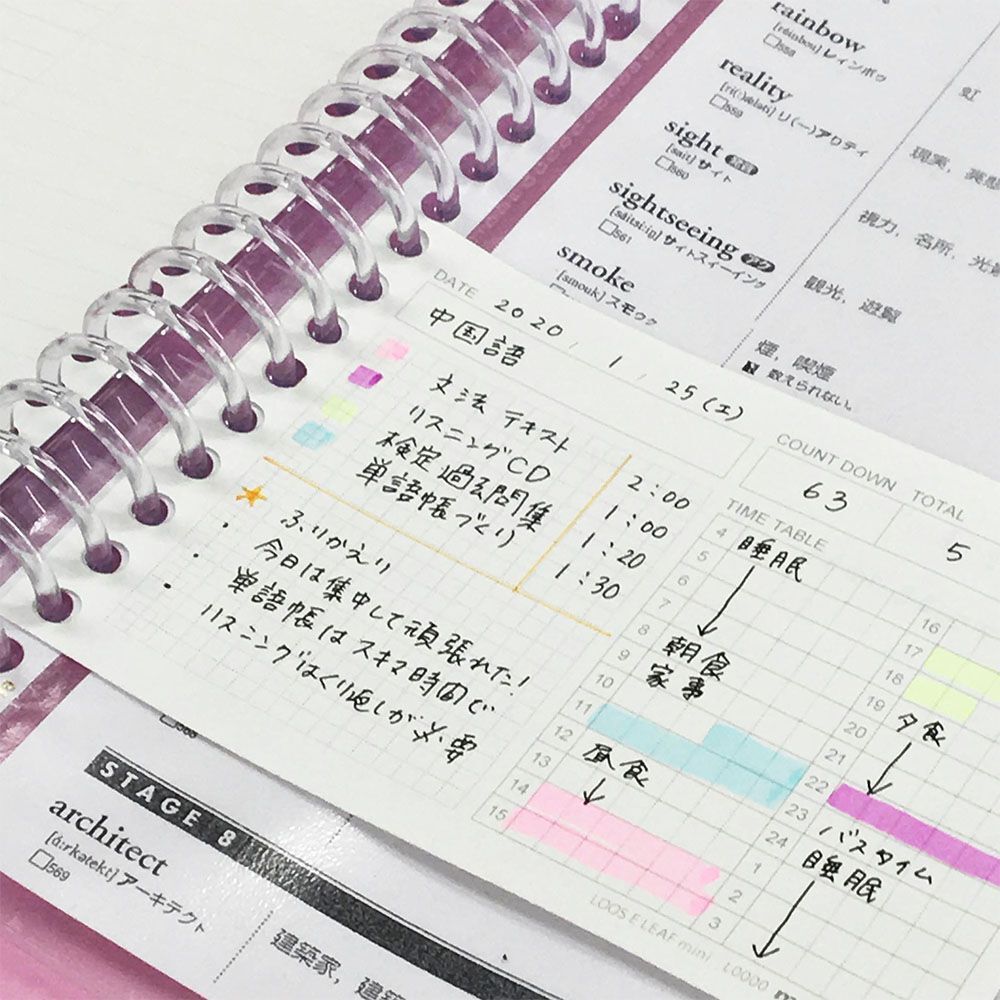 rainbow
[réinbou] レィンボゥ
558
虹
reality
[ri(:)ǽləti] リ(ー)アロティ
559
現実，
sight
[sait] サイト
560
視力，名所，
sightseeing
[sáitsi:iŋ] サイトスィーイング
561
観光，遊覧
smoke
[smouk] スモゥク
煙，喫煙
数えられない。
DATE 2020 / 1 / 25 (土)
中国語
COUNT DOWN 63
TOTAL 5
文法 テキスト 2:00
リスニングCD 1:00
検定過去問集 1:20
単語帳づくり 1:30
★ ふりかえり
・今日は集中して頑張れた!
・単語帳はスキマ時間で
・リスニングはくり返しが必要
TIME TABLE
4 睡眠
5
6
7
8 朝食
9 家事
10
11
12 昼食
13
14
15
16
17
18
19 夕食
20
21
22
23 バスタイム
24 睡眠
1
2
3
LOOSE LEAF mini L0000
STAGE 8
architect
[á:rkətekt] アーキテクト
569
建築家，建築